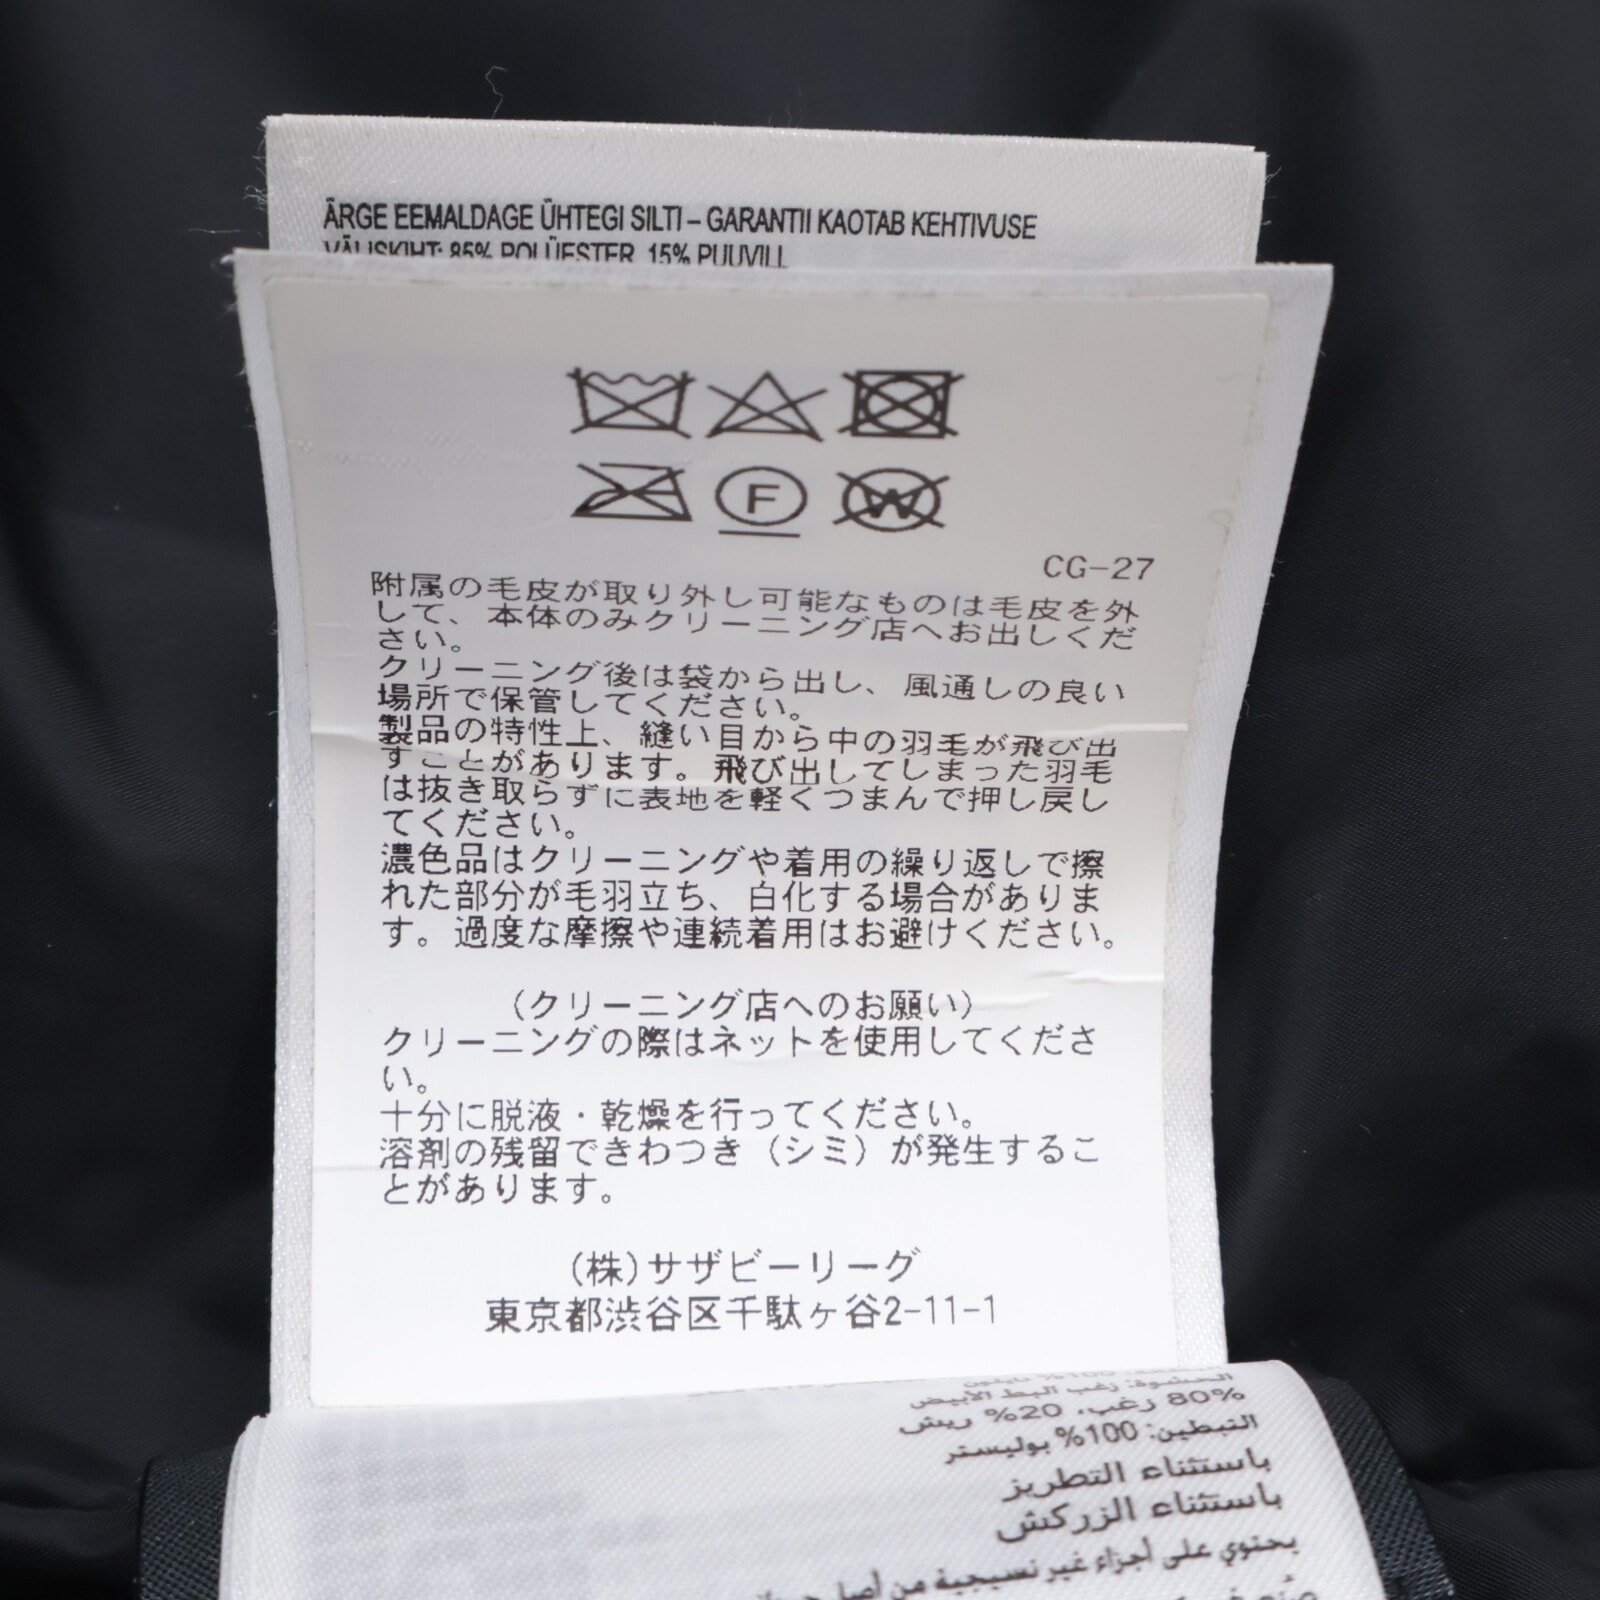 ÄRGE EEMALDAGE ÜHTEGI SILTI – GARANTII KAOTAB KEHTIVUSE
VÄLISKIHT: 85% POLÜESTER, 15% PUUVILL
F
W
CG-27
附属の毛皮が取り外し可能なものは毛皮を外
して、本体のみクリーニング店へお出しくだ
さい。
クリーニング後は袋から出し、風通しの良い
場所で保管してください。
製品の特性上、縫い目から中の羽毛が飛び出
すことがあります。飛び出してしまった羽毛
は抜き取らずに表地を軽くつまんで押し戻し
てください。
濃色品はクリーニングや着用の繰り返しで擦
れた部分が毛羽立ち、白化する場合がありま
す。過度な摩擦や連続着用はお避けください。
（クリーニング店へのお願い）
クリーニングの際はネットを使用してくださ
い。
十分に脱液・乾燥を行ってください。
溶剤の残留できわつき（シミ）が発生するこ
とがあります。
(株)サザビーリーグ
東京都渋谷区千駄ヶ谷2-11-1
الحشوة: زغب البط الأبيض
80% زغب، 20% ريش
التبطين: 100% بوليستر
باستثناء التطريز
باستثناء الزركش
يحتوي على أجزاء غير نسيجية من أصل